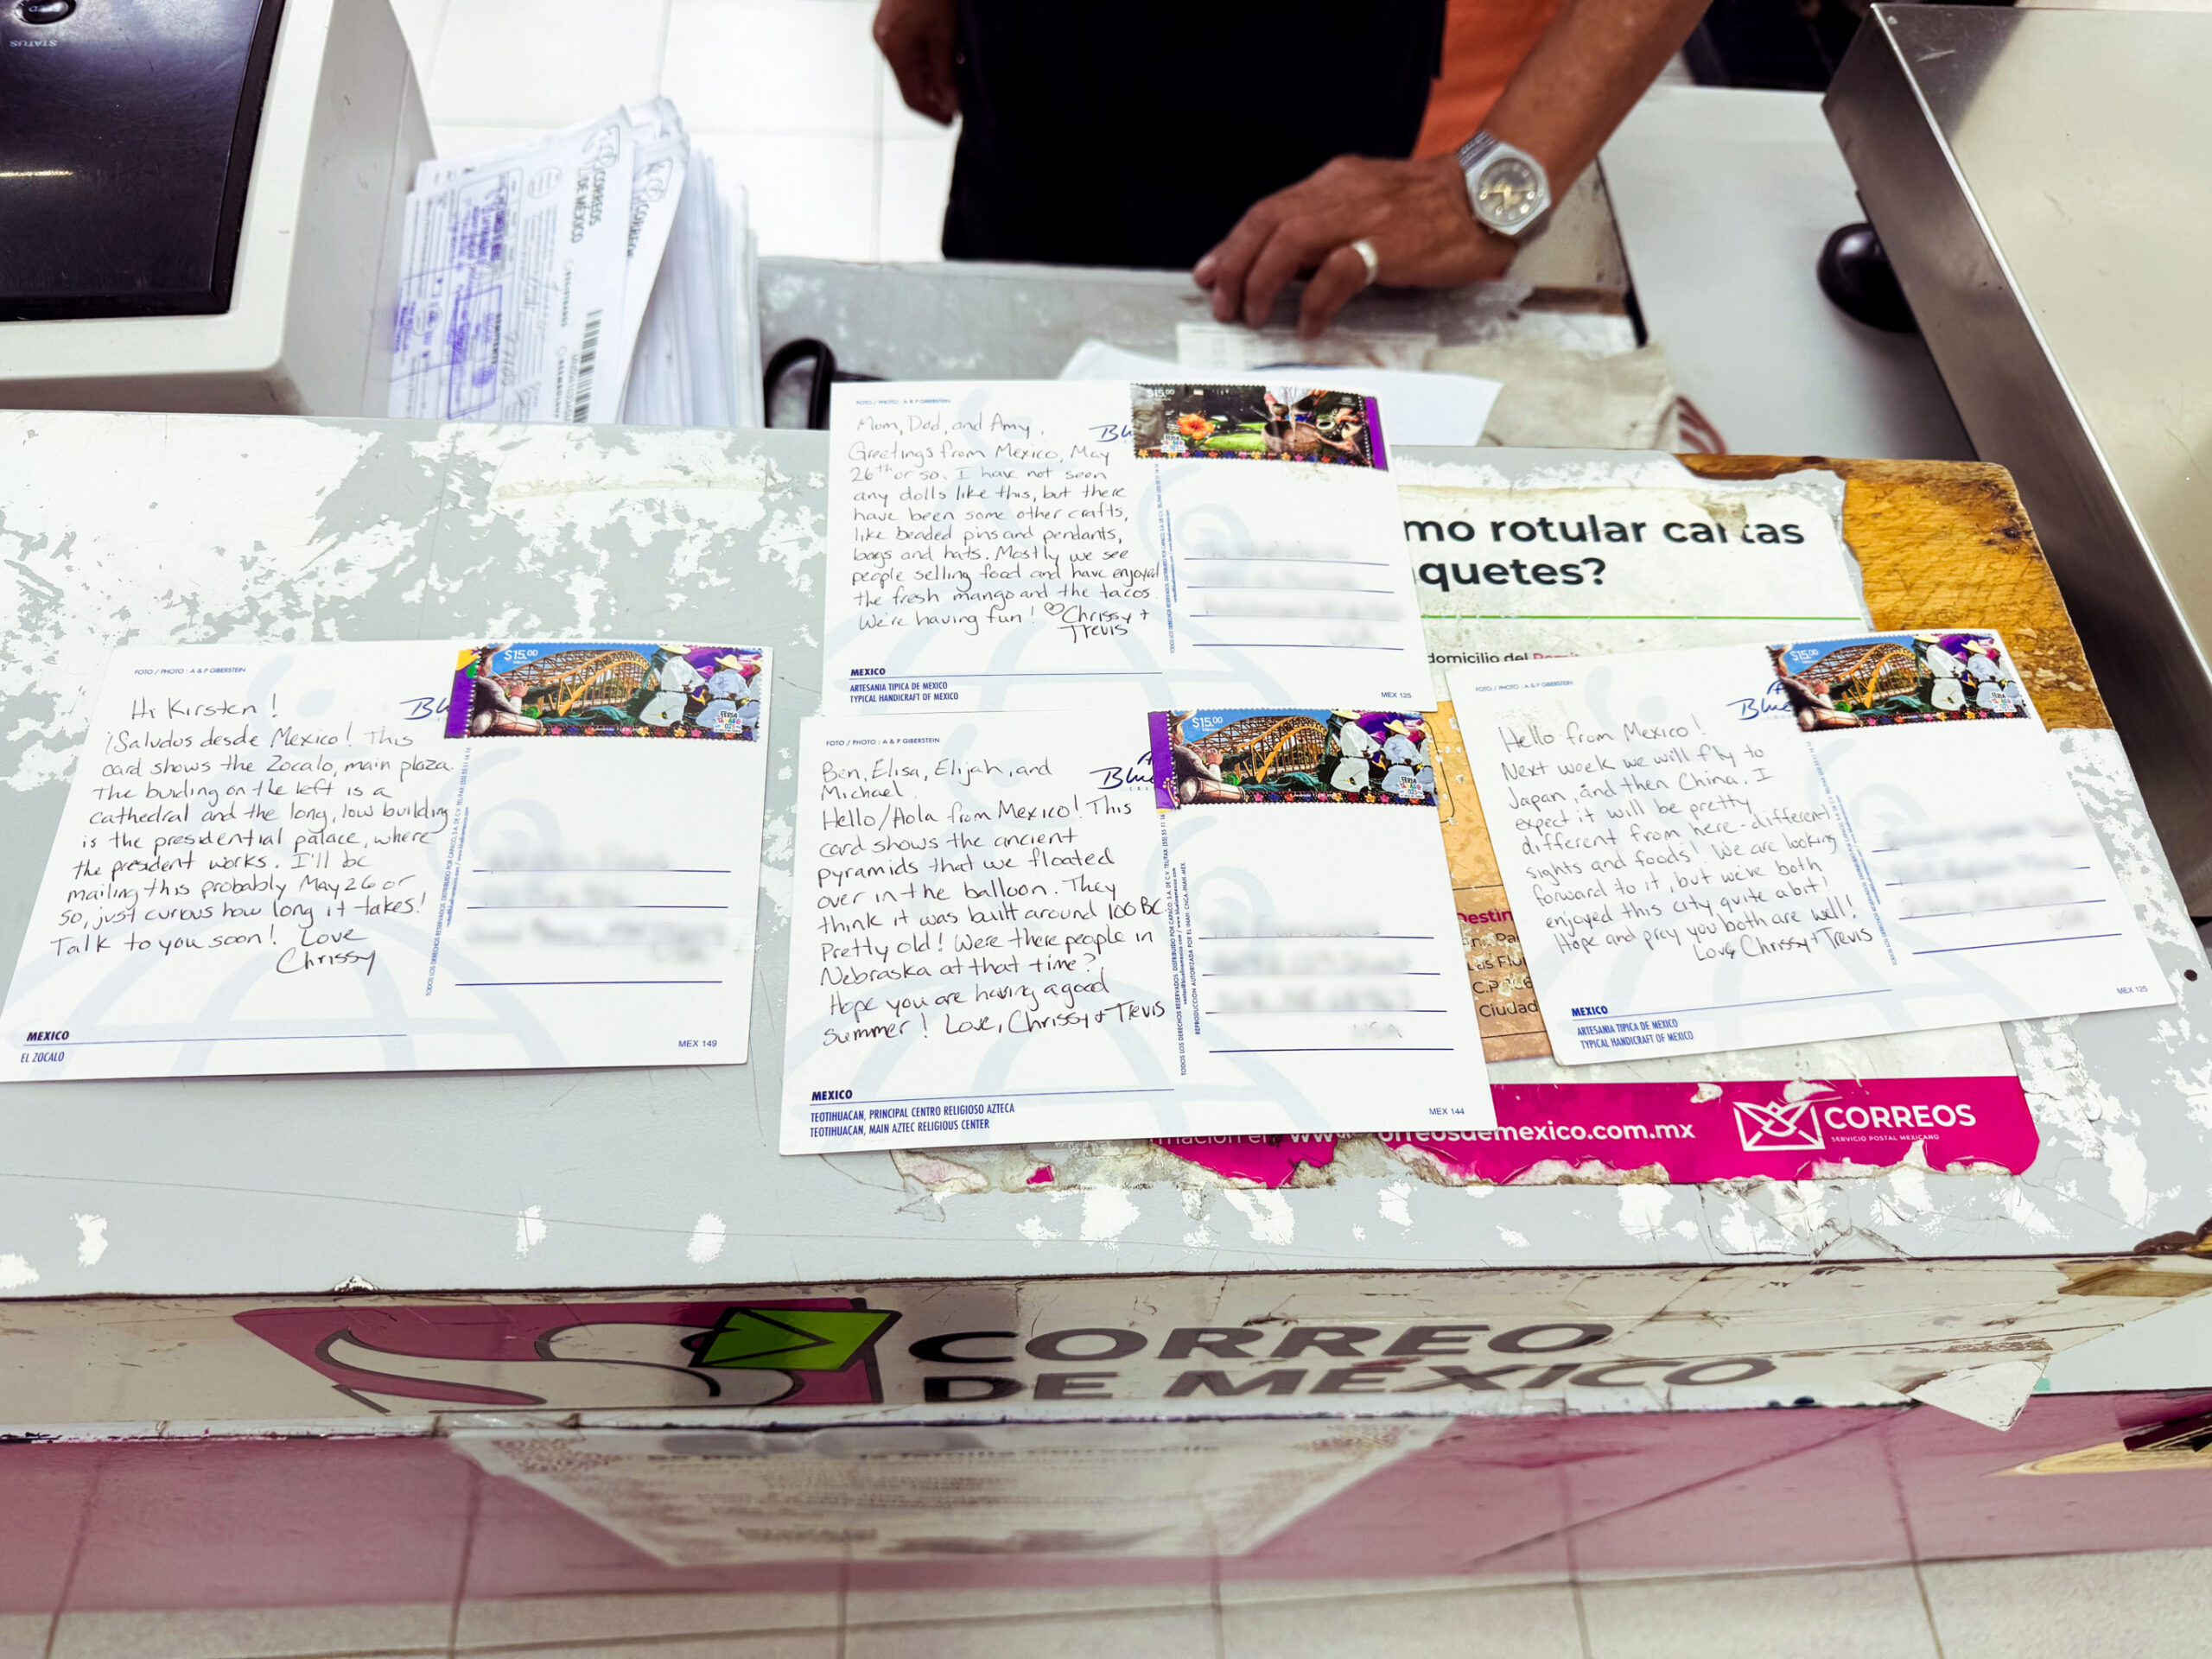 STATUS
CORREOS
DE MÉXICO
FOTO / PHOTO : A & P GIBERSTEIN
Mom, Dad, and Amy,
Greetings from Mexico, May
26th or so. I have not seen
any dolls like this, but there
have been some other crafts,
like beaded pins and pendants,
bags and hats. Mostly we see
people selling food and have enjoyed
the fresh mango and the tacos.
We're having fun! ♡ Chrissy +
Trevis
$15.00
MEXICO
ARTESANIA TIPICA DE MEXICO
TYPICAL HANDICRAFT OF MEXICO
MEX 125
mo rotular cartas
quetes?
domicilio del
FOTO / PHOTO : A & P GIBERSTEIN
Hi Kirsten!
¡Saludos desde Mexico! This
card shows the Zocalo, main plaza.
The building on the left is a
cathedral and the long, low building
is the presidential palace, where
the president works. I'll be
mailing this probably May 26 or
so, just curious how long it takes!
Talk to you soon! Love
Chrissy
$15.00
MEXICO
EL ZOCALO
MEX 149
FOTO / PHOTO : A & P GIBERSTEIN
Ben, Elisa, Elijah, and
Michael
Hello/Hola from Mexico! This
card shows the ancient
pyramids that we floated
over in the balloon. They
think it was built around 100 BC.
Pretty old! Were there people in
Nebraska at that time?
Hope you are having a good
summer! Love, Chrissy + Trevis
Blue
$15.00
USA
MEXICO
TEOTIHUACAN, PRINCIPAL CENTRO RELIGIOSO AZTECA
TEOTIHUACAN, MAIN AZTEC RELIGIOUS CENTER
MEX 144
FOTO / PHOTO : A & P GIBERSTEIN
Hello from Mexico!
Next week we will fly to
Japan, and then China. I
expect it will be pretty
different from here - different
sights and foods! We are looking
forward to it, but we've both
enjoyed this city quite a bit!
Hope and pray you both are well!
Love, Chrissy + Trevis
Blue
$15.00
MEXICO
ARTESANIA TIPICA DE MEXICO
TYPICAL HANDICRAFT OF MEXICO
MEX 125
Ciudad
orreosdemexico.com.mx
CORREOS
SERVICIO POSTAL MEXICANO
CORREO
DE MÉXICO